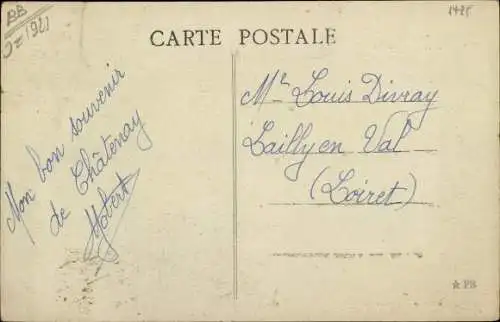 BB
1921
1425
CARTE POSTALE
Mon bon souvenir
de Châtenay
Mr Louis Divray
Lailly en Val
(Loiret)
☆ PB